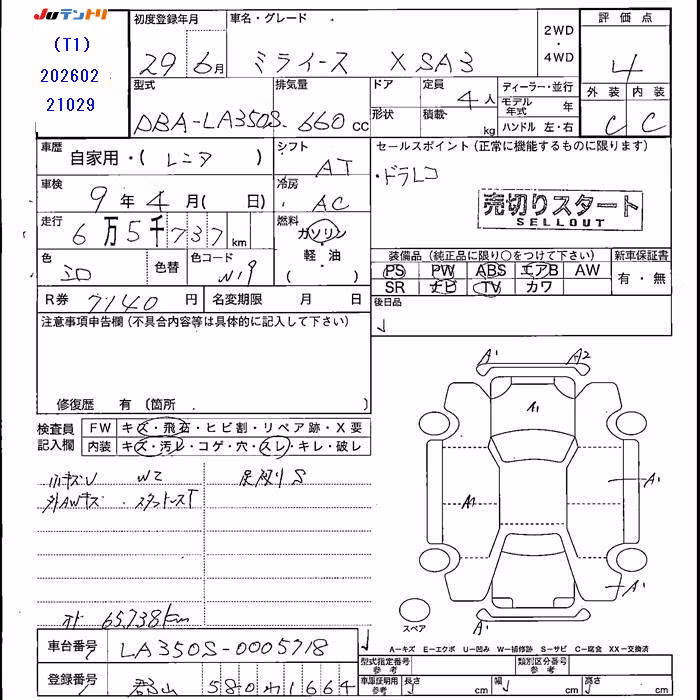 JUテントリ
(T1)
202602
21029
初度登録年月
29 6月
車名・グレード
ミライース X SA3
2WD
・
4WD
評価点
4
外装 内装
C C
型式
DBA-LA350S
排気量
660 cc
ドア
形状
定員 4人
積載 kg
ディーラー・並行
モデル年式 年
ハンドル 左・右
車歴
自家用・( レンタ )
シフト
AT
セールスポイント(正常に機能するものに限ります)
・ドラレコ
売切りスタート
SELLOUT
車検
9年4月( 日)
冷房
AC
走行
6万5千737km
燃料
ガソリン
・
軽油
( )
色
シロ
色替
色コード
W19
装備品(純正品に限り○をつけて下さい)
PS PW ABS エアB AW
SR ナビ TV カワ
新車保証書
有・無
R券 7140円
名変期限 月 日
後日品
注意事項申告欄(不具合内容等は具体的に記入して下さい)
修復歴 有(箇所 )
検査員
記入欄
FW キズ・飛石・ヒビ割・リペア跡・X要
内装 キズ・汚レ・コゲ・穴・スレ・キレ・破レ
小キズU W2
外AWキズ スタットレスT
メト 65,738km
A1 A2
A1
A1 A1
A1
A1
スペア
A-キズ E-エクボ U-凹み W-補修跡 S-サビ C-腐食 XX-交換済
車台番号 LA350S-0005718
登録番号 郡山 580 わ 1664
型式指定番号 参考
類別区分番号 参考
車庫証明用参考
長さ cm 幅 cm 高さ cm